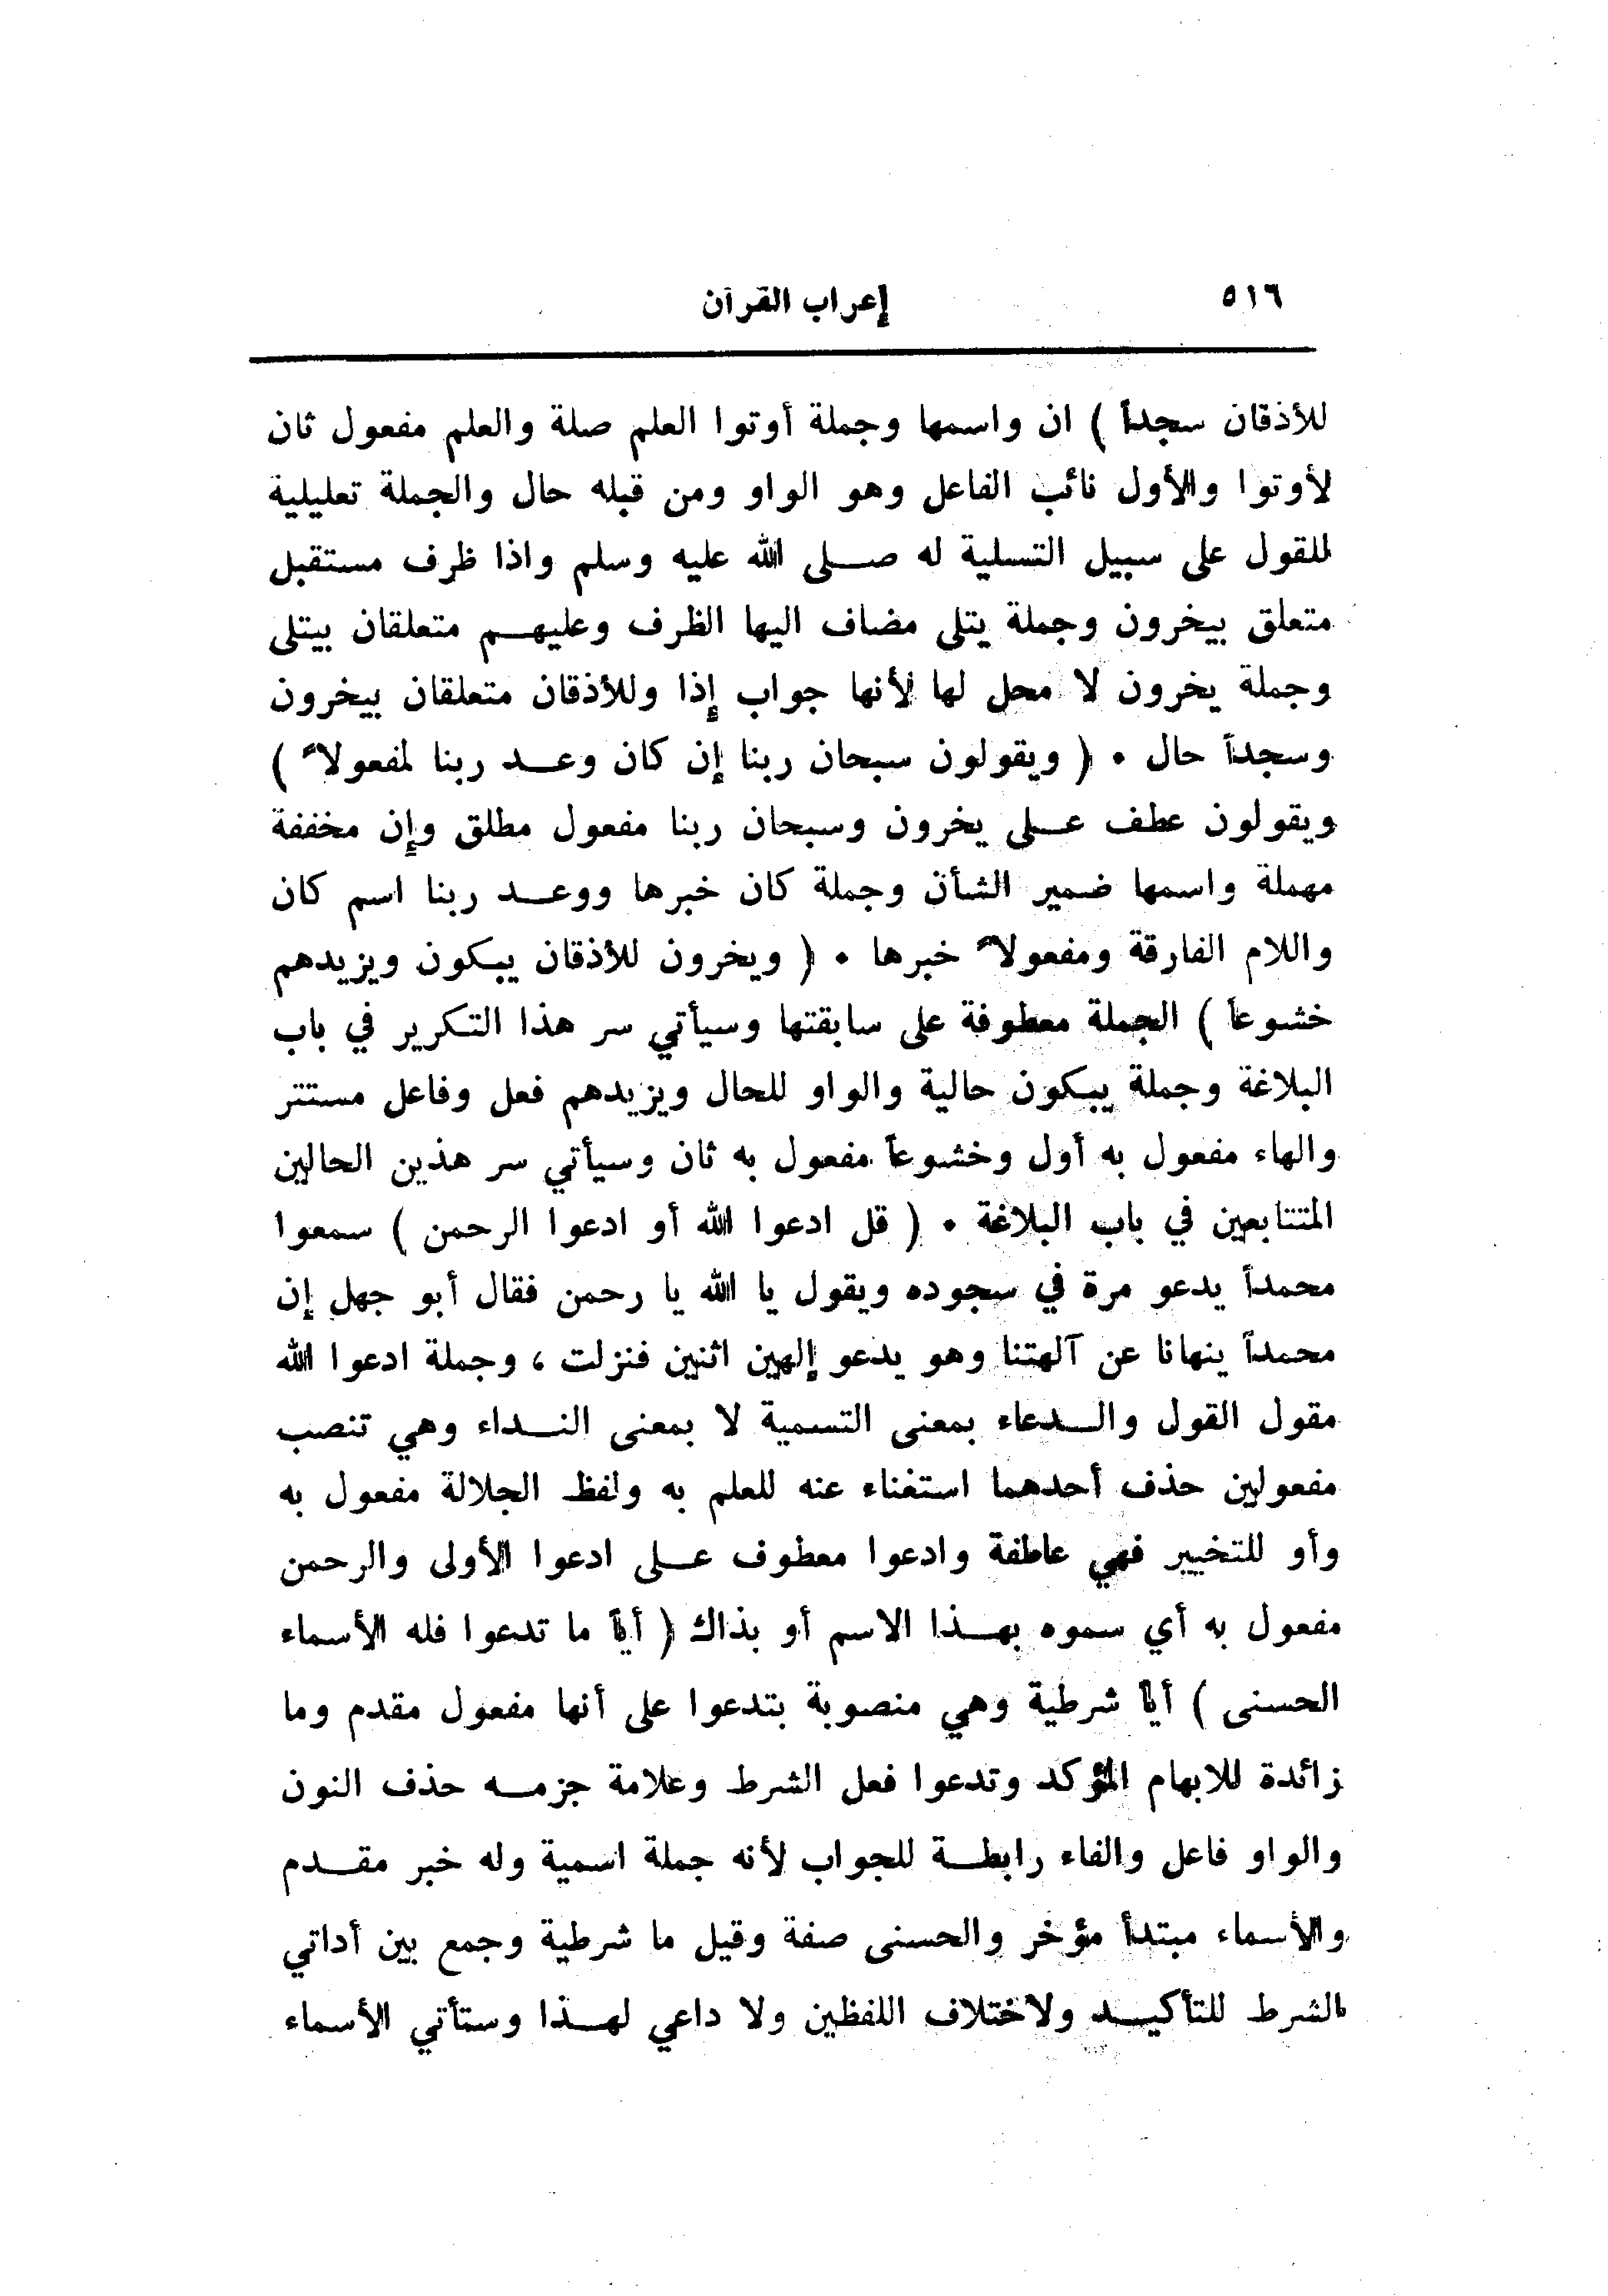 ٥١٦ إعراب القرآن
للأذقان سجداً ) ان واسمها وجملة أوتوا العلم صلة والعلم مفعول ثان
لأوتوا والأول نائب الفاعل وهو الواو ومن قبله حال والجملة تعليلية
للقول على سبيل التسلية له صلى الله عليه وسلم واذا ظرف مستقبل
متعلق بيخرون وجملة يتلى مضاف اليها الظرف وعليهم متعلقان بيتلى
وجملة يخرون لا محل لها لأنها جواب إذا وللأذقان متعلقان بيخرون
وسجداً حال . ( ويقولون سبحان ربنا إن كان وعد ربنا لمفعولاً )
ويقولون عطف على يخرون وسبحان ربنا مفعول مطلق وإن مخففة
مهملة واسمها ضمير الشأن وجملة كان خبرها ووعد ربنا اسم كان
واللام الفارقة ومفعولاً خبرها . ( ويخرون للأذقان يبكون ويزيدهم
خشوعاً ) الجملة معطوفة على سابقتها وسيأتي سر هذا التكرير في باب
البلاغة وجملة يبكون حالية والواو للحال ويزيدهم فعل وفاعل مستتر
والهاء مفعول به أول وخشوعاً مفعول به ثان وسيأتي سر هذين الحالين
المتتابعين في باب البلاغة . ( قل ادعوا الله أو ادعوا الرحمن ) سمعوا
محمداً يدعو مرة في سجوده ويقول يا الله يا رحمن فقال أبو جهل إن
محمداً ينهانا عن آلهتنا وهو يدعو إلهين اثنين فنزلت ، وجملة ادعوا الله
مقول القول والدعاء بمعنى التسمية لا بمعنى النداء وهي تنصب
مفعولين حذف أحدهما استغناء عنه للعلم به ولفظ الجلالة مفعول به
وأو للتخيير فهي عاطفة وادعوا معطوف على ادعوا الأولى والرحمن
مفعول به أي سموه بهذا الاسم أو بذاك ( أياً ما تدعوا فله الأسماء
الحسنى ) أياً شرطية وهي منصوبة بتدعوا على أنها مفعول مقدم وما
زائدة للابهام المؤكد وتدعوا فعل الشرط وعلامة جزمه حذف النون
والواو فاعل والفاء رابطة للجواب لأنه جملة اسمية وله خبر مقدم
والأسماء مبتدأ مؤخر والحسنى صفة وقيل ما شرطية وجمع بين أداتي
الشرط للتأكيد ولاختلاف اللفظين ولا داعي لهذا وستأتي الأسماء